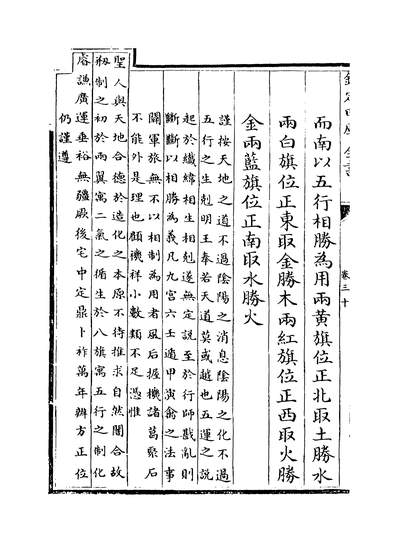 欽定四庫全書
卷三十
而南以五行相勝為用兩黃旗位正北取土勝水
兩白旗位正東取金勝木兩紅旗位正西取火勝
金兩藍旗位正南取水勝火
謹按天地之道不過陰陽之消息陰陽之化不過
五行之生剋明王奉若天道莫或越也五運之説
起於纖緯相生相剋遂無定説至於行師戡亂則
斷斷以相勝為義凡九宫六壬遁甲演禽之法事
關軍旅無不以相制為用者風后握機諸葛聚石
不能外是理也顧禨祥小數類不足憑惟
聖人與天地合德於造化之本原不待推求自然闇合故
剏制之初於兩翼寓二氣之循生於八旗寓五行之制化
睿謨廣運垂裕無疆厥後宅中定鼎卜祚萬年辨方正位
仍謹遵